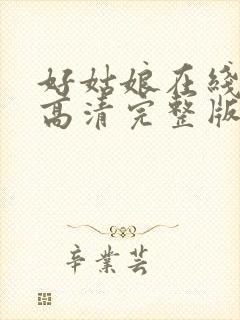 好姑娘在线
高清完整版
辛业芸